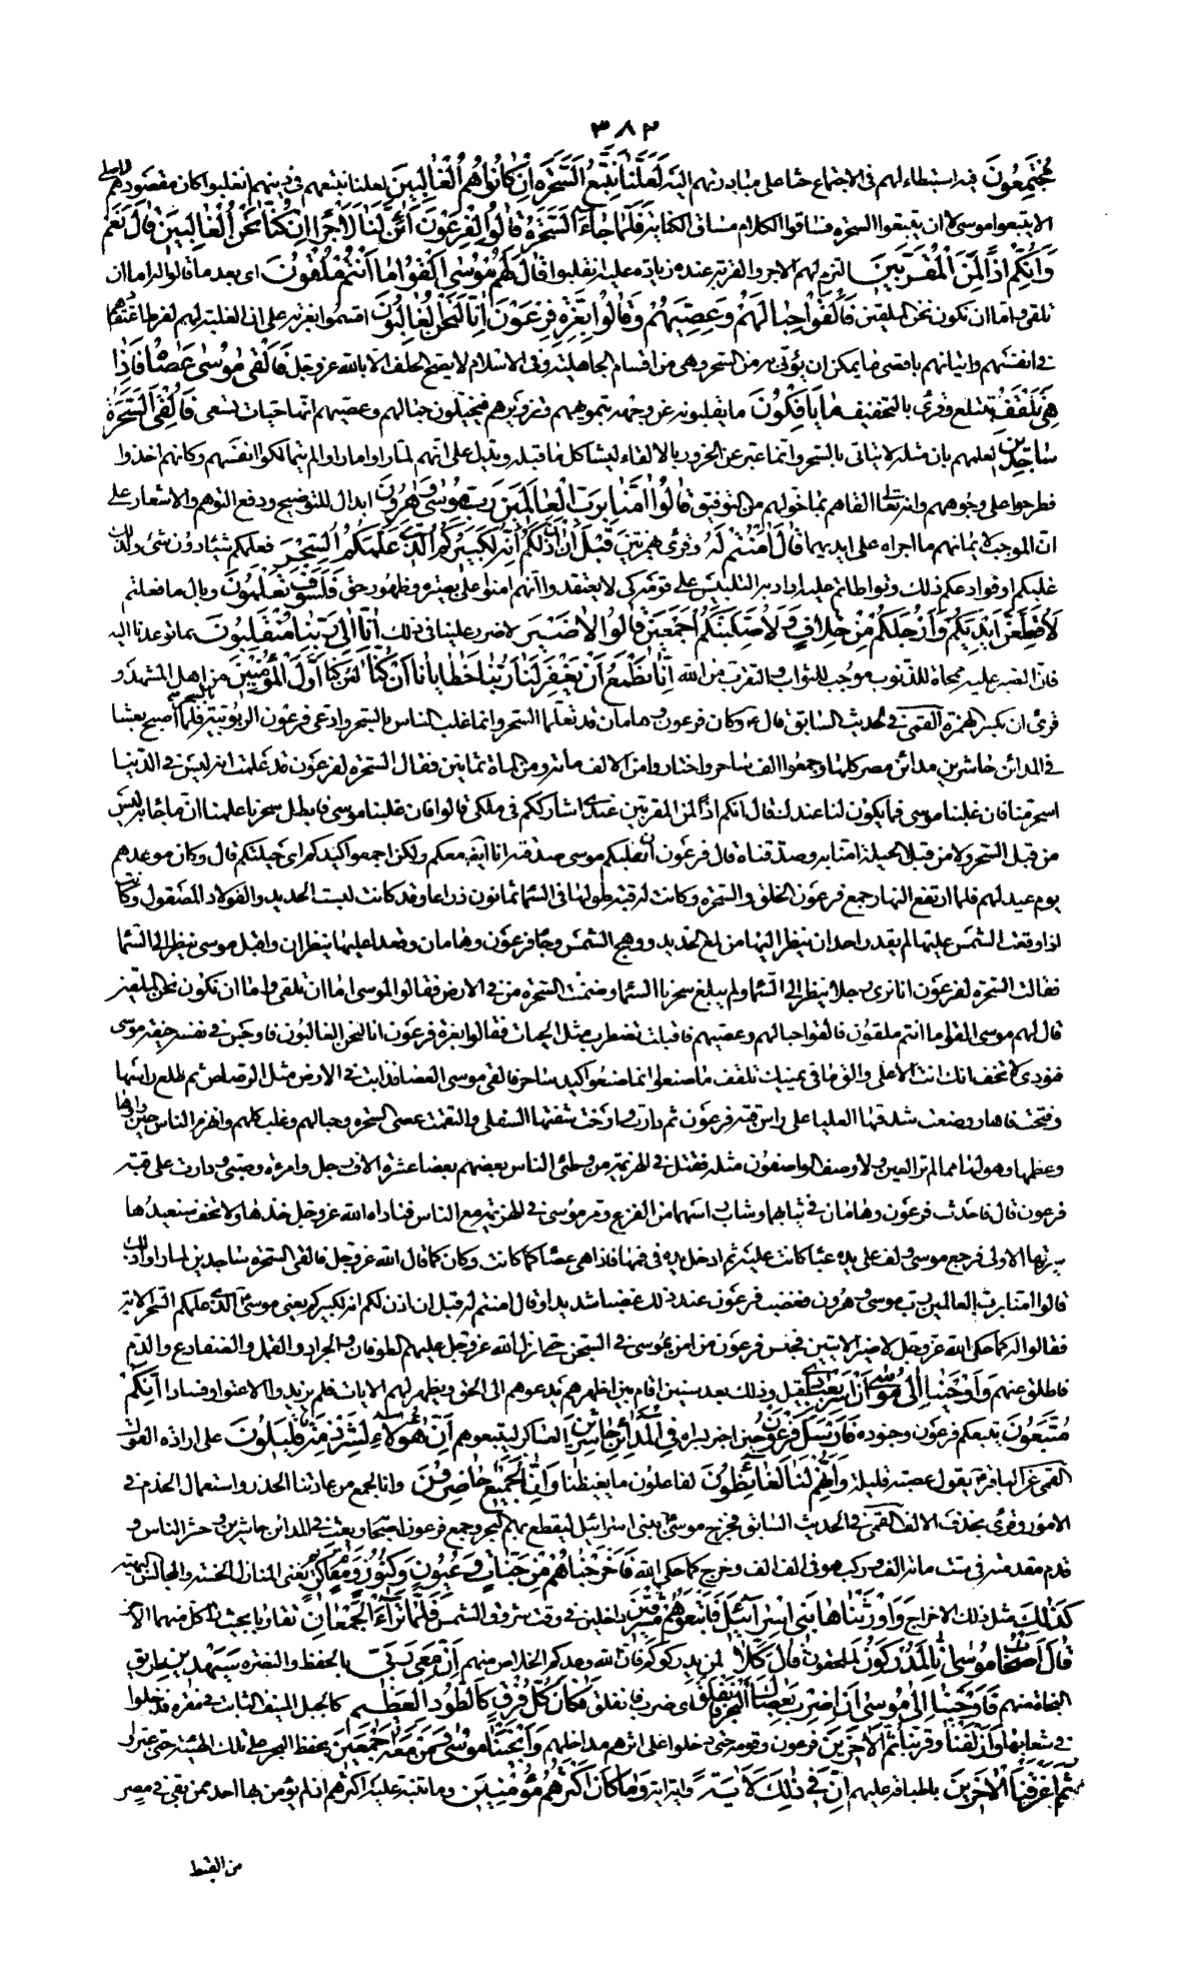 ٣٨٢
مُجْتَمِعُونَ فيه استبطاء لهم في الاجتماع حثا على مبادرتهم اليه لَعَلَّنَا نَتَّبِعُ السَّحَرَةَ اِنْ كَانُوا هُمُ الْغَالِبِينَ لعلنا نتبعهم في دينهم ان غلبوا كان مقصودهم الاصلي
الا يتبعوا موسى لا ان يتبعوا السحرة فساقوا الكلام مساق الكناية فَلَمَّا جَاءَ السَّحَرَةُ قَالُوا لِفِرْعَوْنَ اَئِنَّ لَنَا لَاَجْرًا اِنْ كُنَّا نَحْنُ الْغَالِبِينَ قَالَ نَعَمْ
وَاِنَّكُمْ اِذًا لَمِنَ الْمُقَرَّبِينَ التزم لهم الاجر والقربة عنده زيادة عليه ان غلبوا قَالَ لَهُمْ مُوسَى اَلْقُوا مَا اَنْتُمْ مُلْقُونَ اى بعد ما قالوا له اما ان
تلقى واما ان نكون نحن الملقين فَاَلْقَوْا حِبَالَهُمْ وَعِصِيَّهُمْ وَقَالُوا بِعِزَّةِ فِرْعَوْنَ اِنَّا لَنَحْنُ الْغَالِبُونَ اقسموا بعزته على ان الغلبة لهم لفرط اعتقادهم
في انفسهم واتيانهم باقصى ما يمكن ان يؤتى به من السحر وهي من اقسام الجاهلية وفي الاسلام لا يصح الحلف الا بالله عز وجل فَاَلْقَى مُوسَى عَصَاهُ فَاِذَا
هِيَ تَلْقَفُ تبتلع وقرئ بالتخفيف مَا يَاْفِكُونَ ما يقلبونه عن وجهه بتمويههم وتزويرهم فيخيلون حبالهم وعصيهم انها حيات تسعى فَاُلْقِيَ السَّحَرَةُ
سَاجِدِينَ لعلمهم بان مثله لا يتأتى بالسحر وانما عبر عن الخرور بالالقاء ليشاكل ما قبله ويدل على انهم لما راوا ما راوا لم يتمالكوا انفسهم وكانهم اخذوا
فطرحوا على وجوههم وانه تعالى القاهم بما خولهم من التوفيق قَالُوا اٰمَنَّا بِرَبِّ الْعَالَمِينَ رَبِّ مُوسَى وَهٰرُونَ ابدال للتوضيح ودفع التوهم والاشعار على
ان الموجب لايمانهم ما اجراه على ايديهما قَالَ اٰمَنْتُمْ لَهُ وقرئ بهمزتين قَبْلَ اَنْ اٰذَنَ لَكُمْ اِنَّهُ لَكَبِيرُكُمُ الَّذِي عَلَّمَكُمُ السِّحْرَ فعلمكم شيئا دون شئ ولذلك
غلبكم او فوادعكم ذلك وتواطاتم عليه اراد به التلبيس على قومه كى لا يعتقدوا انهم امنوا على بصيرة وظهور حق فَلَسَوْفَ تَعْلَمُونَ وبال ما فعلتم
لَاُقَطِّعَنَّ اَيْدِيَكُمْ وَاَرْجُلَكُمْ مِنْ خِلَافٍ وَلَاُصَلِّبَنَّكُمْ اَجْمَعِينَ قَالُوا لَا ضَيْرَ لا ضرر علينا في ذلك اِنَّا اِلَى رَبِّنَا مُنْقَلِبُونَ بما توعدنا اليه
فان الصبر عليه محاة للذنوب موجب للثواب والتقرب من الله اِنَّا نَطْمَعُ اَنْ يَغْفِرَ لَنَا رَبُّنَا خَطَايَانَا اَنْ كُنَّا لان كنا اَوَّلَ الْمُؤْمِنِينَ من اهل المشهد و
قرئ ان بكسر الهمزة القمى في الحديث السابق قال وكان فرعون وهامان قد تعلما السحر وانما غلب الناس بالسحر وادعى فرعون الربوبية بالسحر فلما اصبح بعث
في المدائن حاشرين مدائن مصر كلها وجمعوا الف ساحر واختاروا من الالف مائة ومن الماة ثمانين فقال السحرة لفرعون قد علمت انه ليس في الدنيا
اسحر منا فان غلبنا موسى فما يكون لنا عندك قال انكم اذا لمن المقربين عندى اشارككم في ملكى قالوا فان غلبنا موسى فابطل سحرنا علمنا ان ما جاء به ليس
من قبل السحر ولا من قبل الحيلة امنا به وصدقناه قال فرعون ان غلبكم موسى صدقته انا ايضا معكم ولكن اجمعوا كيدكم اى حيلتكم قال وكان موعدهم
يوم عيد لهم فلما ارتفع النهار جمع فرعون الخلق والسحرة وكانت له قبة طولها في السماء ثمانون ذراعا وقد كانت لبست الحديد والفولاذ المصقول وكانت
اذا وقعت الشمس عليها لم يقدر احد ان ينظر اليها من لمع الحديد ووهج الشمس وجاء فرعون وهامان وقعدا عليها ينظران واقبل موسى ينظر الى السماء
فقالت السحرة لفرعون انا نرى رجلا ينظر الى السماء ولم يبلغ سحرنا السماء وضمنت السحرة من في الارض فقالوا لموسى اما ان تلقى واما ان نكون نحن الملقين
قال لهم موسى القوا ما انتم ملقون فالقوا حبالهم وعصيهم فاقبلت تضطرب مثل الحيات فقالوا بعزة فرعون انا لنحن الغالبون فاوجس في نفسه خيفة موسى
فنودى لا تخف انك انت الاعلى والق ما في يمينك تلقف ما صنعوا انما صنعوا كيد ساحر فالقى موسى العصا فذابت في الارض مثل الرصاص ثم طلع راسها
وفتحت فاها ووضعت شدقها العليا على راس قبة فرعون ثم دارت وارخت شفتها السفلى والتقمت عصى السحرة وحبالهم وغلب كلهم وانهزم الناس حين راوها
وعظمها وهولها مما لم تر العين ولا وصف الواصفون مثله فقتل في الهزيمة من وطئ الناس بعضهم بعضا عشرة الاف رجل وامراة وصبى ودارت على قبة
فرعون قال فاحدث فرعون وهامان في ثيابهما وشاب راسهما من الفزع ومر موسى في الهزيمة مع الناس فناداه الله عز وجل خذها ولا تخف سنعيدها
سيرتها الاولى فرجع موسى ولف على يده عبا كانت عليه ثم ادخل يده في فمها فاذا هي عصا كما كانت وكان كما قال الله عز وجل فالقى السحرة ساجدين لما راوا ذلك
قالوا امنا برب العالمين رب موسى وهرون فغضب فرعون عند ذلك غضبا شديدا وقال امنتم له قبل ان اذن لكم انه لكبيركم يعنى موسى الذى علمكم السحر الاية
فقالوا له كما حكى الله عز وجل لا ضير الايتين فحبس فرعون من امن بموسى في السجن حتى انزل الله عز وجل عليهم الطوفان والجراد والقمل والضفادع والدم
فاطلق عنهم وَاَوْحَيْنَا اِلَى مُوسَى اَنْ اَسْرِ بِعِبَادِي قيل وذلك بعد سنين اقام بين اظهرهم يدعوهم الى الحق ويظهر لهم الايات فلم يزيدوا الا عتوا وفسادا اِنَّكُمْ
مُتَّبَعُونَ يتبعكم فرعون وجنوده فَاَرْسَلَ فِرْعَوْنُ حين اخبر بسراه فِي الْمَدَائِنِ حَاشِرِينَ العساكر ليتبعوهم اِنَّ هٰؤُلَاءِ لَشِرْذِمَةٌ قَلِيلُونَ على ارادة القول
القمى عن الباقر يقول عصبة قليلة وَاِنَّهُمْ لَنَا لَغَائِظُونَ لفاعلون ما يغيظنا وَاِنَّا لَجَمِيعٌ حَاذِرُونَ وانا لجمع من عادتنا الحذر واستعمال الحزم في
الامور وقرئ بحذف الالف القمى في الحديث السابق فخرج موسى ببنى اسرائيل ليقطع بهم البحر وجمع فرعون اصحابه وبعث في المدائن حاشرين وحشر الناس و
قدم مقدمته في ست مائة الف وركب هو في الف الف وخرج كما حكى الله فَاَخْرَجْنَاهُمْ مِنْ جَنَّاتٍ وَعُيُونٍ وَكُنُوزٍ وَمَقَامٍ كَرِيمٍ يعنى المنازل الحسنة والمجالس البهية
كَذٰلِكَ مثل ذلك الاخراج وَاَوْرَثْنَاهَا بَنِي اِسْرَائِيلَ فَاَتْبَعُوهُمْ مُشْرِقِينَ داخلين في وقت شروق الشمس فَلَمَّا تَرَاءَ الْجَمْعَانِ تقاربا بحيث راى كل منهما الاخر
قَالَ اَصْحَابُ مُوسَى اِنَّا لَمُدْرَكُونَ لملحقون قَالَ كَلَّا لن يدركوكم فان الله وعدكم الخلاص منهم اِنَّ مَعِيَ رَبِّي بالحفظ والنصرة سَيَهْدِينِ طريق
النجاة منهم فَاَوْحَيْنَا اِلَى مُوسَى اَنِ اضْرِبْ بِعَصَاكَ الْبَحْرَ فَانْفَلَقَ اى ضرب فانفلق فَكَانَ كُلُّ فِرْقٍ كَالطَّوْدِ الْعَظِيمِ كالجبل المنيف الثابت في مقره فدخلوا
في شعابها وَاَزْلَفْنَا وقربنا ثَمَّ الْاٰخَرِينَ فرعون وقومه حتى دخلوا على اثرهم مداخلهم وَاَنْجَيْنَا مُوسَى وَمَنْ مَعَهُ اَجْمَعِينَ بحفظ البحر على تلك الهيئة حتى عبروا
ثُمَّ اَغْرَقْنَا الْاٰخَرِينَ باطباقه عليهم اِنَّ فِي ذٰلِكَ لَاٰيَةً واية اية وَمَا كَانَ اَكْثَرُهُمْ مُؤْمِنِينَ وما تنبه عليه اكثرهم اذ لم يؤمن بها احد ممن بقى في مصر
من القبط